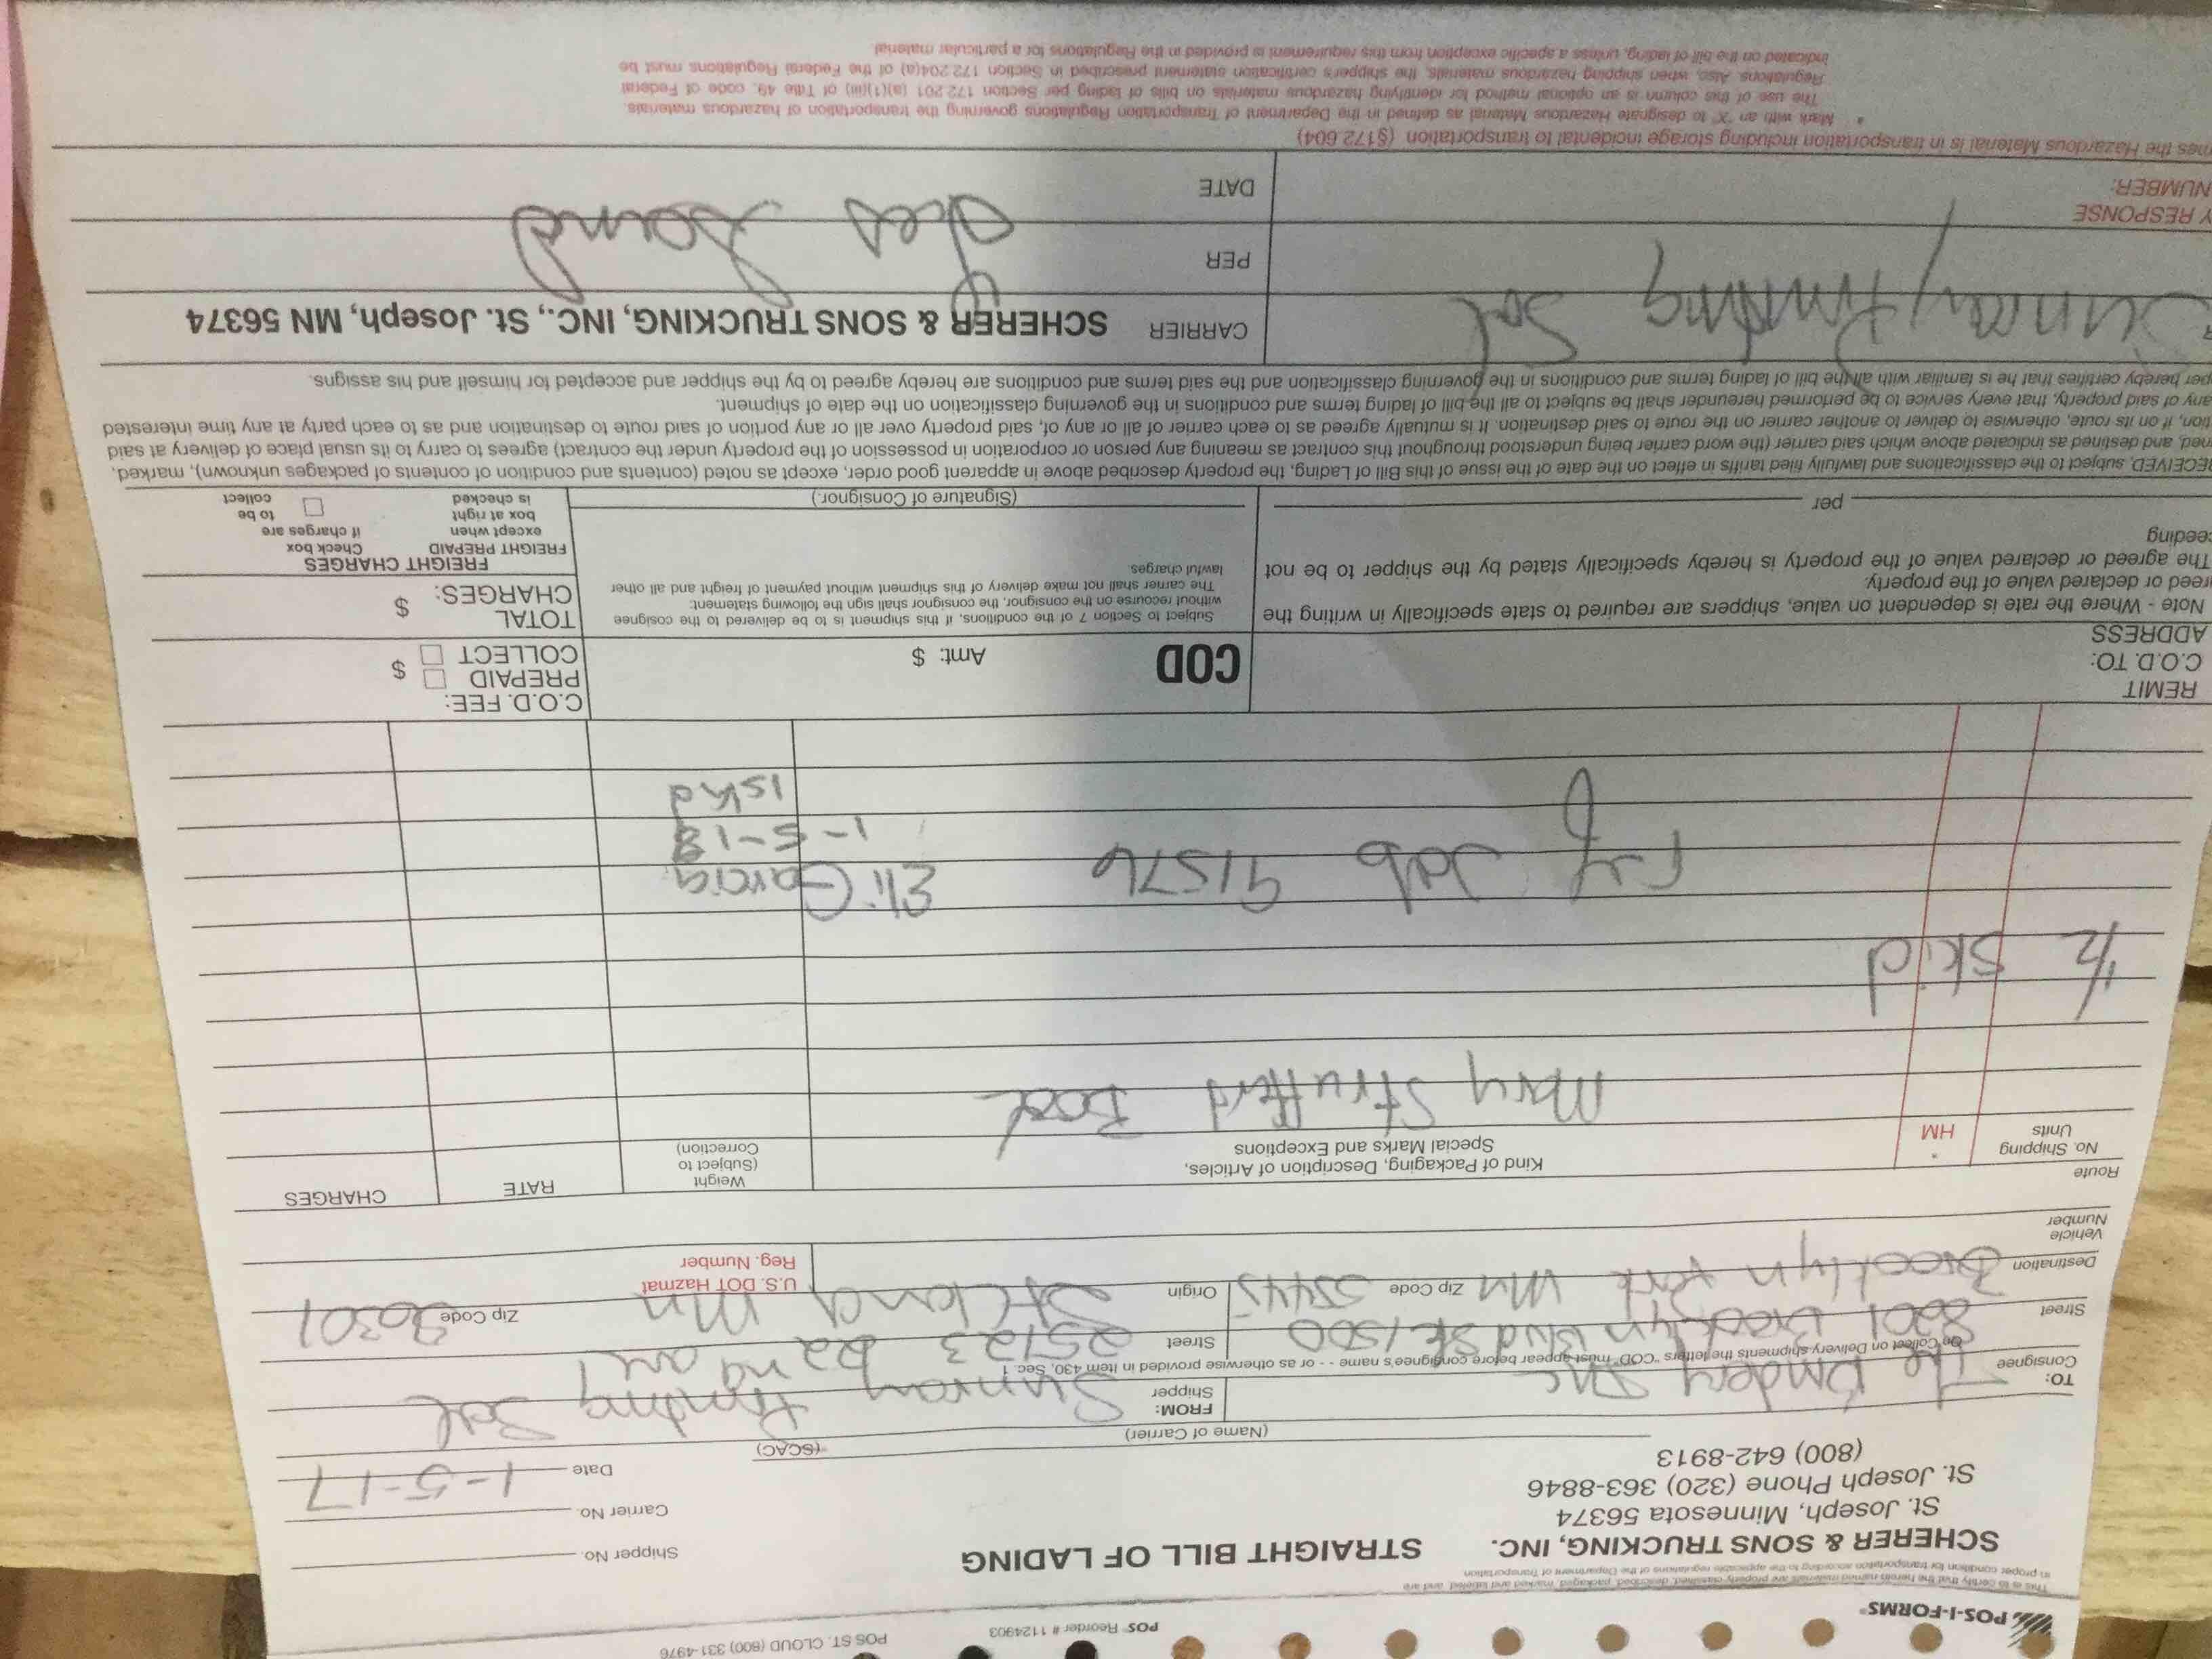 POS-I-FORMS
POS Reorder # 1124903
POS ST. CLOUD (800) 331-4976
This is to certify that the herein named materials are properly classified, described, packaged, marked and labeled, and are
in proper condition for transportation according to the applicable regulations of the Department of Transportation
SCHERER & SONS TRUCKING, INC.
St. Joseph, Minnesota 56374
St. Joseph Phone (320) 363-8846
(800) 642-8913
STRAIGHT BILL OF LADING
Shipper No.
Carrier No.
Date 1-5-17
(Name of Carrier) (SCAC)
TO:
Consignee The Bindery Inc
On Collect on Delivery shipments the letters "COD" must appear before consignee's name - - or as otherwise provided in Item 430, Sec. 1
Street 8201 Brooklyn Blvd Ste 1500
Destination Brooklyn Park Mn Zip Code 55445
FROM:
Shipper Sunray Printing Sol
Street 25123 22nd ave
Origin St Cloud Mn Zip Code 56301
Vehicle
Number
U.S. DOT Hazmat
Reg. Number
Route
No. Shipping
Units
*
HM
Kind of Packaging, Description of Articles,
Special Marks and Exceptions
Weight
(Subject to
Correction)
RATE
CHARGES
Mary Struffert Book
1/2 Skid
Ref Job 91576
Eli Garcia
1-5-18
1skd
REMIT
C.O.D. TO:
ADDRESS
COD Amt: $
C.O.D. FEE:
PREPAID
COLLECT $
Note - Where the rate is dependent on value, shippers are required to state specifically in writing the
reed or declared value of the property.
The agreed or declared value of the property is hereby specifically stated by the shipper to be not
ceeding
per
Subject to Section 7 of the conditions, if this shipment is to be delivered to the cosignee
without recourse on the consignor, the consignor shall sign the following statement:
The carrier shall not make delivery of this shipment without payment of freight and all other
lawful charges.
(Signature of Consignor.)
TOTAL
CHARGES: $
FREIGHT CHARGES
FREIGHT PREPAID
except when
box at right
is checked
Check box
if charges are
to be
collect
RECEIVED, subject to the classifications and lawfully filed tariffs in effect on the date of the issue of this Bill of Lading, the property described above in apparent good order, except as noted (contents and condition of contents of packages unknown), marked,
ned, and destined as indicated above which said carrier (the word carrier being understood throughout this contract as meaning any person or corporation in possession of the property under the contract) agrees to carry to its usual place of delivery at said
tion, if on its route, otherwise to deliver to another carrier on the route to said destination. It is mutually agreed as to each carrier of all or any of, said property over all or any portion of said route to destination and as to each party at any time interested
any of said property, that every service to be performed hereunder shall be subject to all the bill of lading terms and conditions in the governing classification on the date of shipment.
per hereby certifies that he is familiar with all the bill of lading terms and conditions in the governing classification and the said terms and conditions are hereby agreed to by the shipper and accepted for himself and his assigns.
Sunray Printing Sol
CARRIER SCHERER & SONS TRUCKING, INC., St. Joseph, MN 56374
PER
DATE
Y RESPONSE
NUMBER:
mes the Hazardous Material is in transportation including storage incidental to transportation (§172.604)
* Mark with an "X" to designate Hazardous Material as defined in the Department of Transportation Regulations governing the transportation of hazardous materials.
The use of this column is an optional method for identifying hazardous materials on bills of lading per Section 172.201 (a)(1)(iii) of Title 49, code of Federal
Regulations. Also, when shipping hazardous materials, the shipper's certification statement prescribed in Section 172.204(a) of the Federal Regulations must be
indicated on the bill of lading, unless a specific exception from this requirement is provided in the Regulations for a particular material.